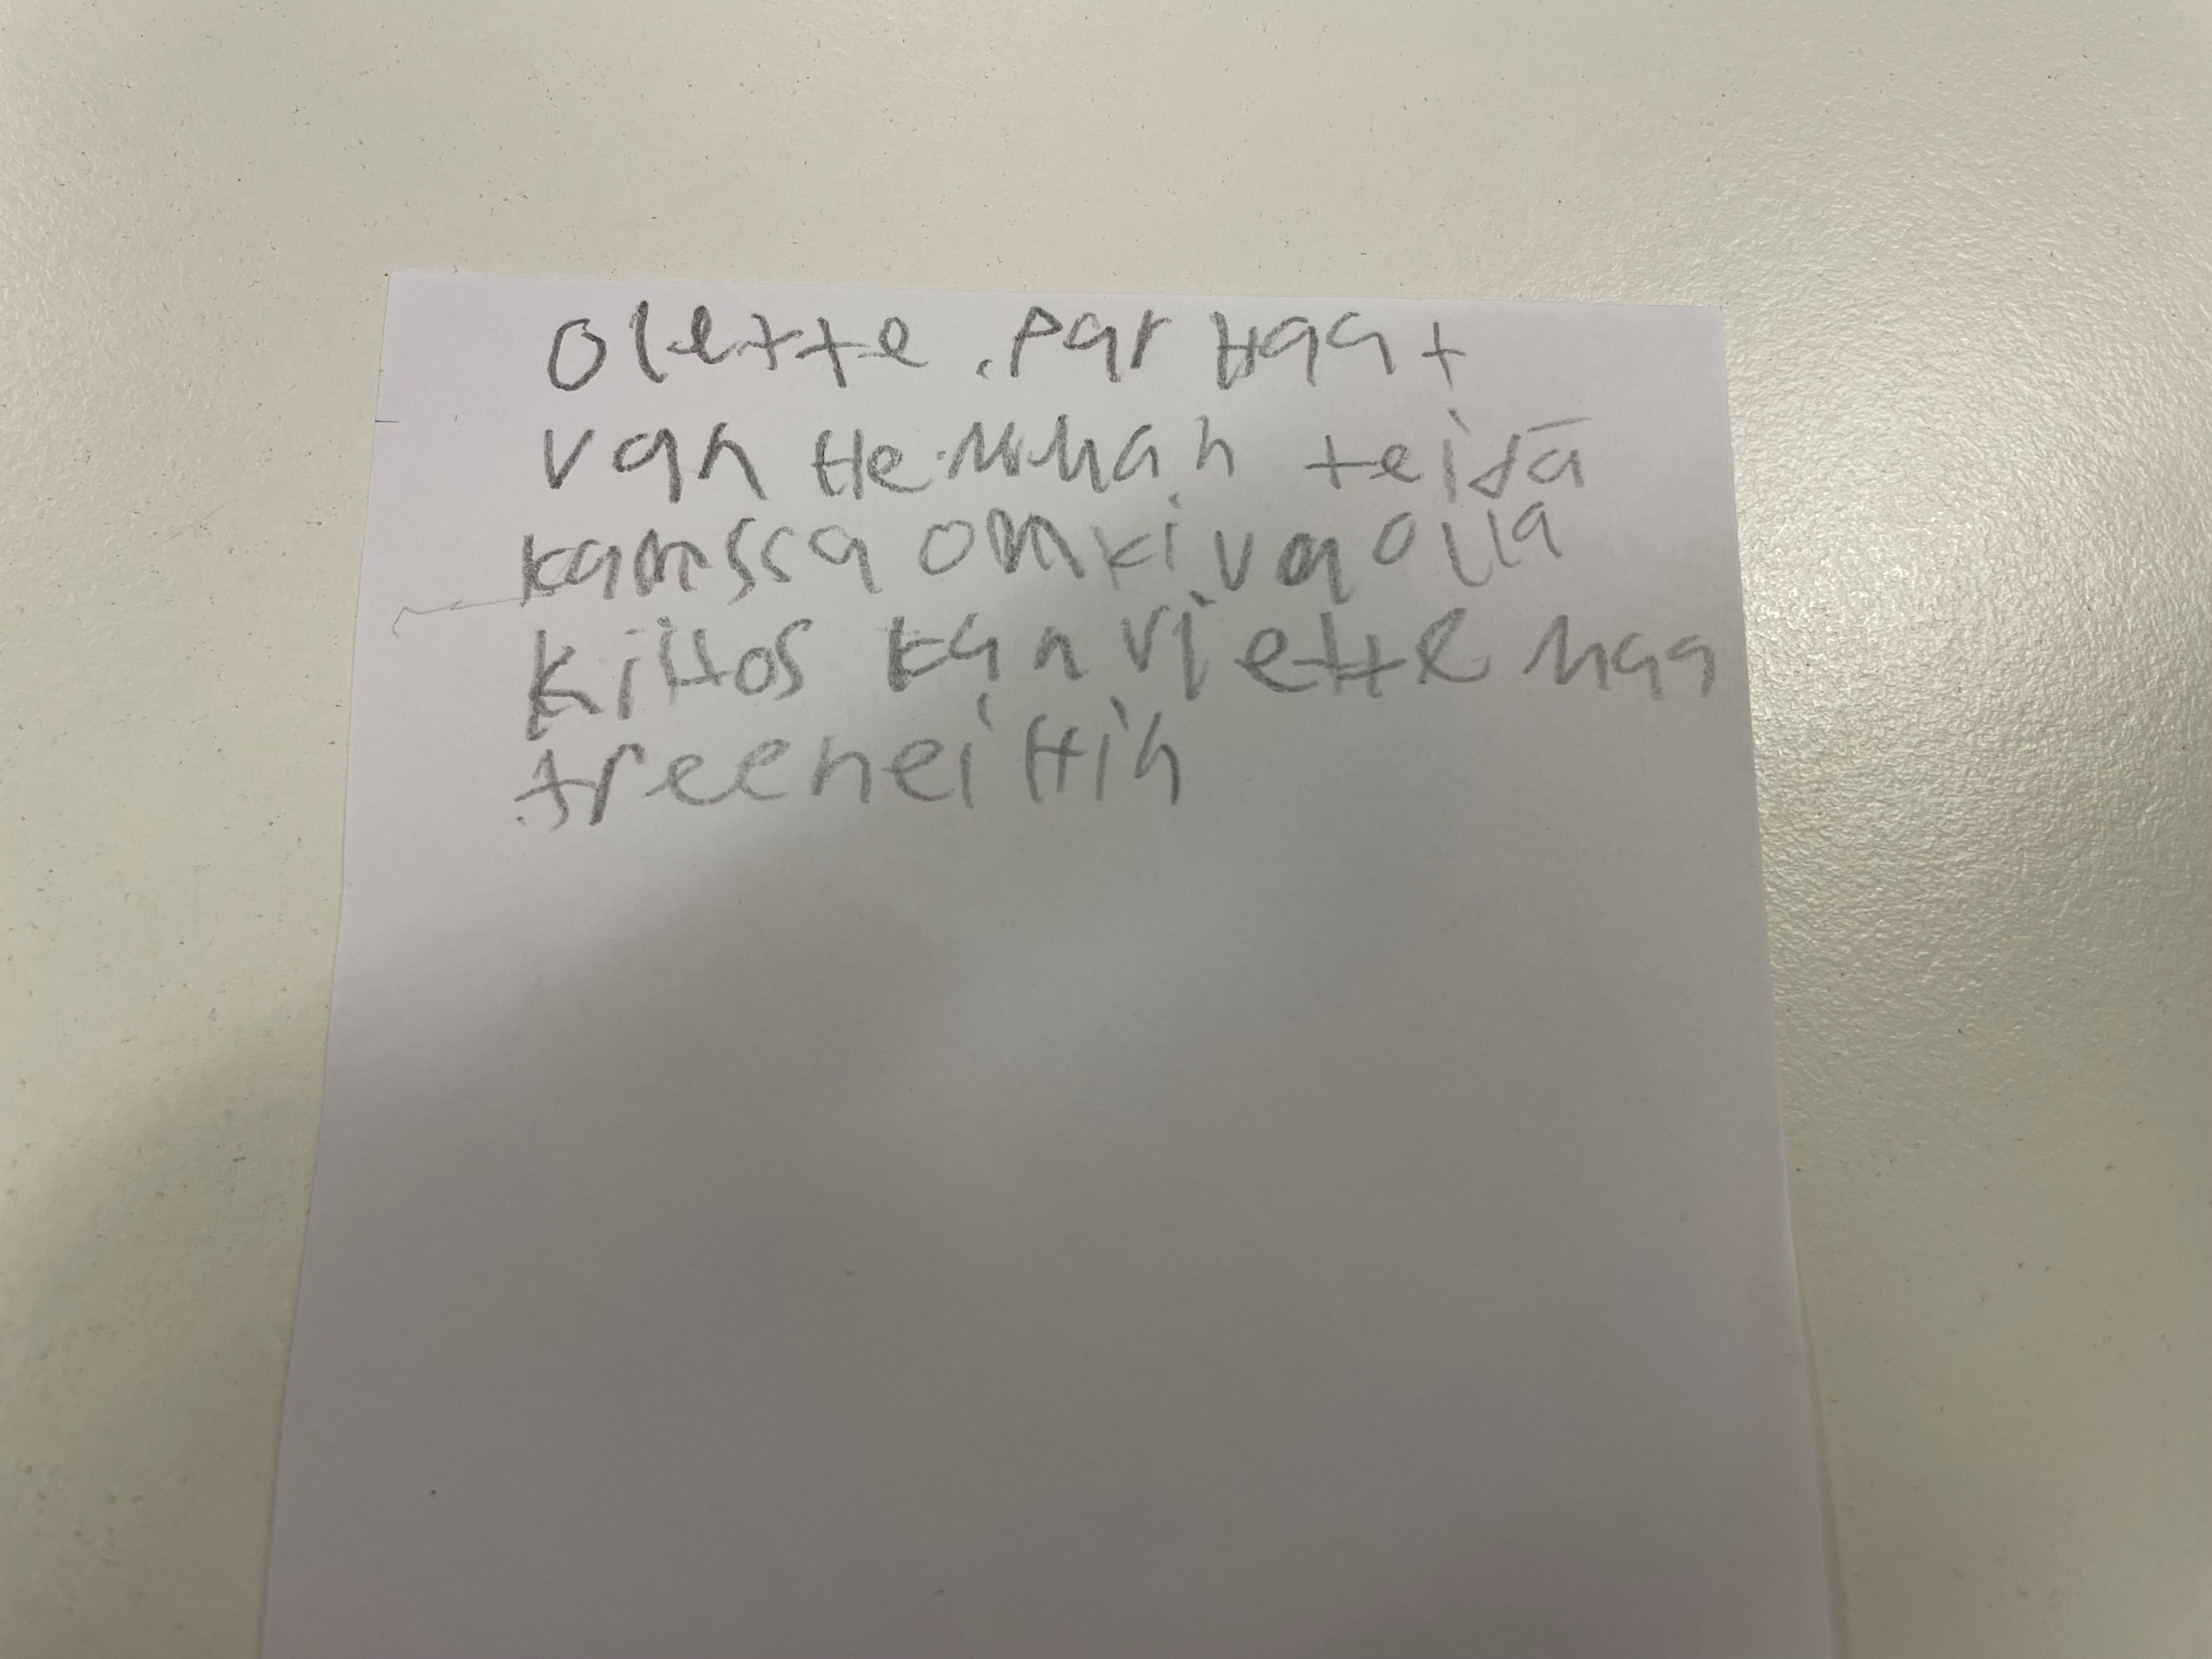 olette. parhaat
vanhemman teidä
kanssa on kiva olla
kiitos kan viette maa
treeneihin